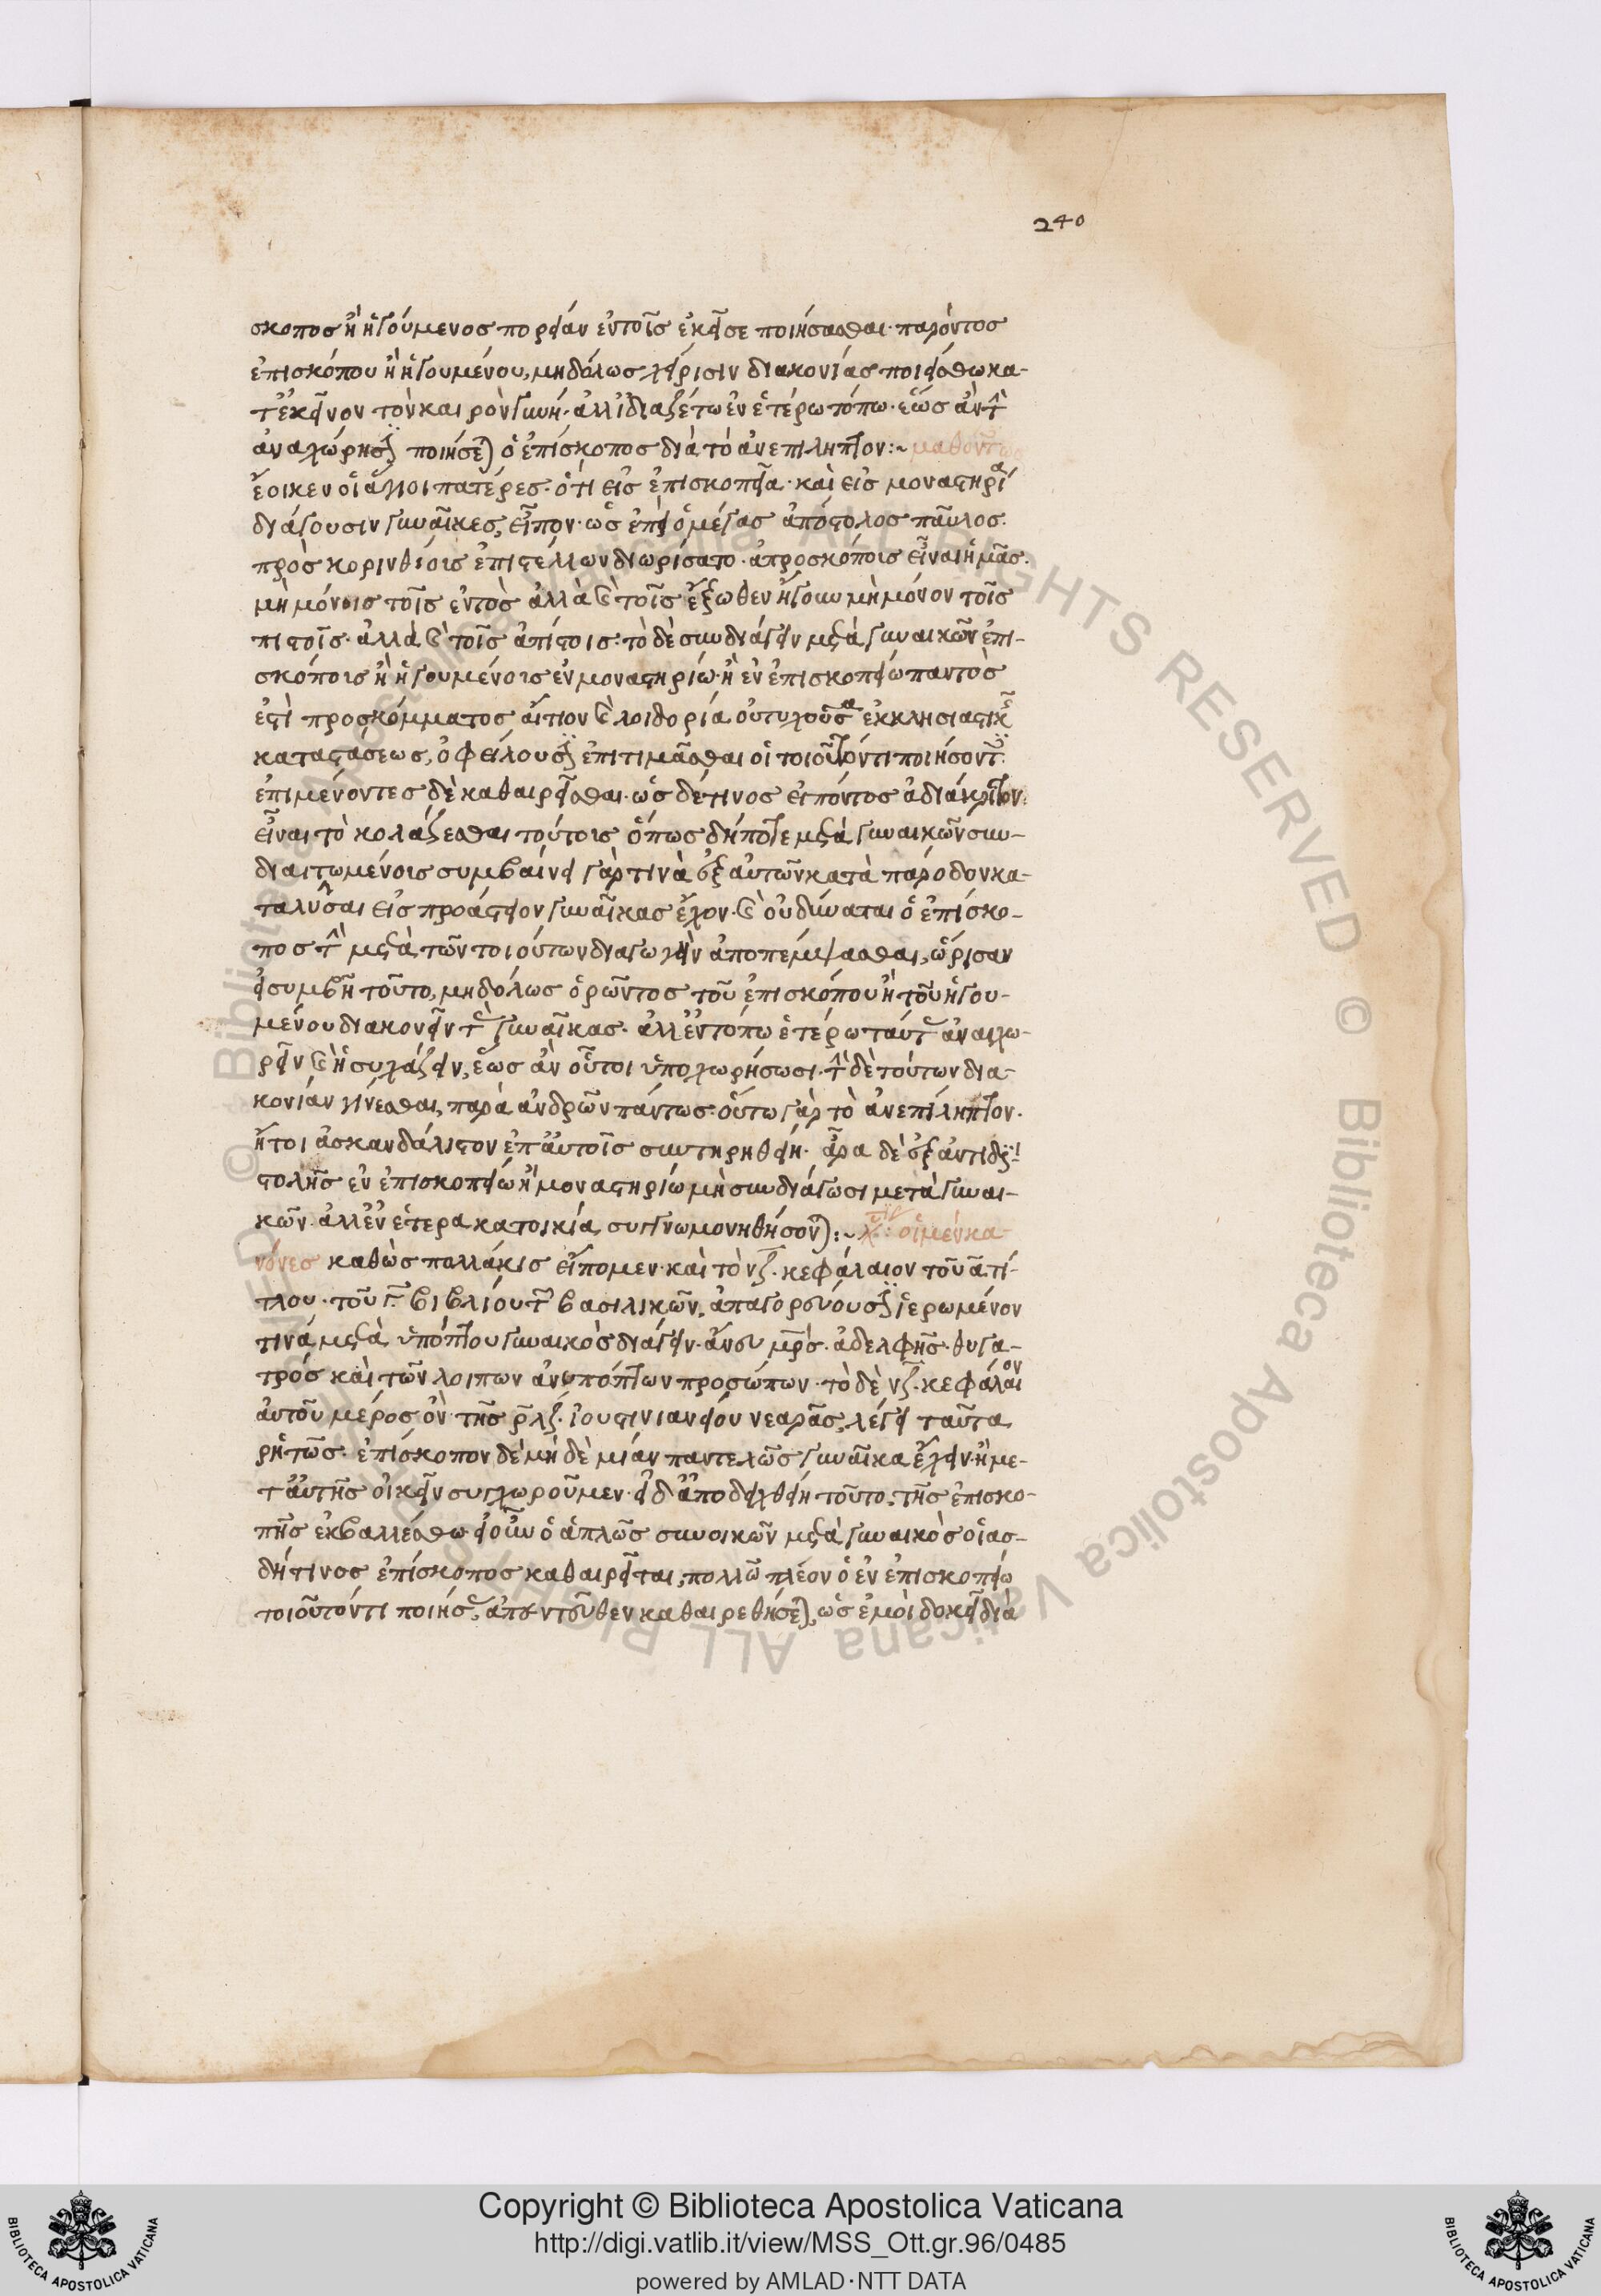 240
σκοπος ἢ ἡγούμενος πορείαν ἐν τοῖς ἐκεῖσε ποιήσασθαι· παρόντος
ἐπισκόπου ἢ ἡγουμένου, μηδόλως χείρισιν διακονίας ποιείσθω κα-
τ' ἐκεῖνον τὸν καιρὸν γυνή· ἀλλ' ἰδιαζέτω ἐν ἑτέρω τόπω· ἕως ἂν τὴν
ἀναχώρησιν ποιήσεται ὁ ἐπίσκοπος διὰ τὸ ἀνεπίληπτον:~ μαθόντες
ἔοικεν οἱ ἅγιοι πατέρες· ὅτι εἰς ἐπισκοπεῖα· καὶ εἰς μοναστήρια
διάγουσιν γυναῖκες, εἶπον· ὡς ἐπεὶ ὁ μέγας ἀπόστολος παῦλος·
πρὸς κορινθίοις ἐπιστέλλων διωρίσατο· ἀπροσκόποις εἶναι ἡμᾶς·
μὴ μόνοις τοῖς ἐντὸς ἀλλὰ καὶ τοῖς ἔξωθεν ἤγουν μὴ μόνον τοῖς
πιστοῖς· ἀλλὰ καὶ τοῖς ἀπίστοις· τὸ δὲ συνδιάγειν μετὰ γυναικῶν ἐπι-
σκόποις ἢ ἡγουμένοις ἐν μοναστηρίω· ἢ ἐν ἐπισκοπείω παντὸς
ἐστὶ προσκόμματος αἴτιον καὶ λοιδορία οὐ τυχοῦσα ἐκκλησιαστικῆς
καταστάσεως, ὀφείλουσιν ἐπιτιμᾶσθαι οἱ τοιοῦτόν τι ποιήσοντες·
ἐπιμένοντες δὲ καθαιρεῖσθαι· ὡς δέ τινος εἰπόντος ἀδιάκριτον
εἶναι τὸ κολάζεσθαι τούτοις ὅπως δήποτε μετὰ γυναικῶν συν-
διαιτωμένοις συμβαίνει γὰρ τινὰ ἐξ αὐτῶν κατὰ πάροδον κα-
ταλῦσαι εἰς προάστειον γυναῖκας ἔχον· καὶ οὐ δύναται ὁ ἐπίσκο-
πος τὴν μετὰ τῶν τοιούτων διαγωγὴν ἀποπέμψασθαι, ὥρισαν
εἰ συμβῆ τοῦτο, μηδόλως ὁρῶντος τοῦ ἐπισκόπου ἢ τοῦ ἡγου-
μένου διακονεῖν τὰς γυναῖκας· ἀλλ' ἐν τόπω ἑτέρω ταύτας ἀναχω-
ρεῖν καὶ ἡσυχάζειν, ἕως ἂν οὗτοι ὑποχωρήσωσι· τὴν δὲ τούτων δια-
κονίαν γίνεσθαι, παρὰ ἀνδρῶν πάντως· οὕτω γὰρ τὸ ἀνεπίληπτον·
ἤτοι ἀσκανδάλιστον ἐπ' αὐτοῖς συντηρηθείη· ἆρα δὲ ἐξ ἀντιδια-
στολῆς ἐν ἐπισκοπείω ἢ μοναστηρίω μὴ συνδιάγωσι μετὰ γυναι-
κῶν· ἀλλ' ἐν ἑτέρα κατοικία, συγγνωμονηθήσονται:~ οἱ μὲν κα-
νόνες καθὼς πολλάκις εἴπομεν· καὶ τὸ νζ· κεφάλαιον τοῦ α τί-
τλου· τοῦ γ βιβλίου τῶν βασιλικῶν, ἀπαγορεύουσιν ἱερωμένον
τινά, μετὰ ὑπόπτου γυναικὸς διάγειν· ἄνευ μρς· ἀδελφῆς· θυγα-
τρός καὶ τῶν λοιπων ἀνυπόπτων προσώπων· τὸ δὲ νζ· κεφάλαιον
αὐτοῦ μέρος ὂν τῆς ρλζ· ἰουστινιανείου νεαρᾶς, λέγει ταῦτα
ῥητῶς· ἐπίσκοπον δὲ μὴ δὲ μίαν παντελῶς γυναῖκα ἔχειν· ἢ με-
τ' αὐτῆς οἰκεῖν συγχωροῦμεν· εἰ δ' ἀποδειχθείη τοῦτο, τῆς ἐπισκο-
πῆς ἐκβαλλέσθω· εἰ οὖν ὁ ἁπλῶς συνοικῶν μετὰ γυναικὸς οἵας-
δήτινος ἐπίσκοπος καθαιρεῖται, πολλῶ πλέον ὁ ἐν ἐπισκοπείω
τοιοῦτόν τι ποιήσας, ἀπεντεῦθεν καθαιρεθήσεται, ὡς ἐμοὶ δοκεῖ διὰ
Copyright © Biblioteca Apostolica Vaticana
http://digi.vatlib.it/view/MSS_Ott.gr.96/0485
powered by AMLAD·NTT DATA
© Biblioteca Apostolica Vaticana ALL RIGHTS RESERVED
© Biblioteca Apostolica Vaticana ALL RIGHTS RESERVED
BIBLIOTECA APOSTOLICA VATICANA
BIBLIOTECA APOSTOLICA VATICANA